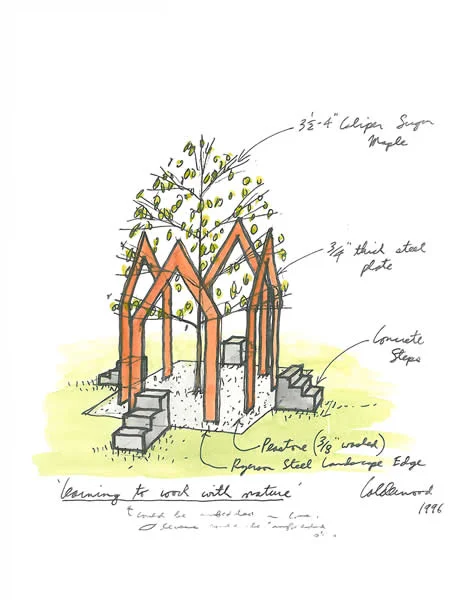 3½-4" Caliper Sugar
Maple
3/4" thick steel
plate
Concrete
Steps
Peastone (3/8" washed)
Ryerson Steel Landscape Edge
'learning to work with nature'
Calderwood
1996
could be
could be